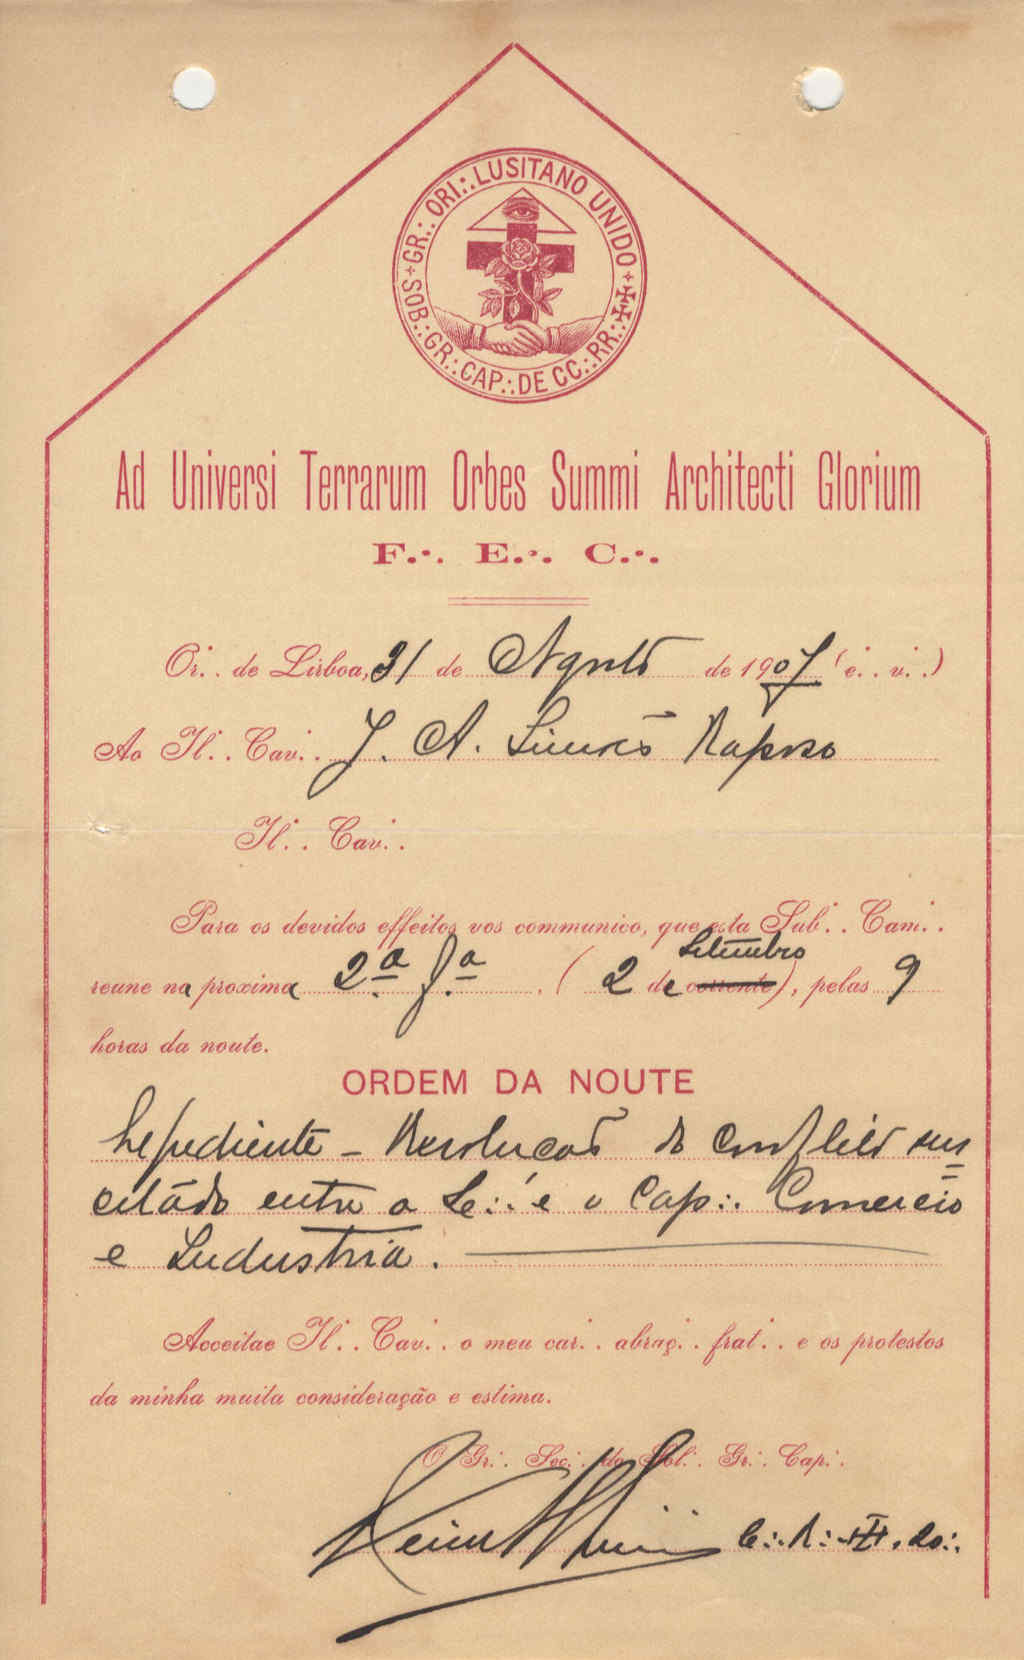 GR∴ ORI∴ LUSITANO UNIDO
SOB∴ GR∴ CAP∴ DE CC∴ RR∴ ‡‡
Ad Universi Terrarum Orbes Summi Architecti Glorium
F∴ E∴ C∴
Or∴ de Lisboa, 31 de Agosto de 1907 (e∴ v∴)
Ao Il∴ Cav∴ J. A. Simões Raposo
Il∴ Cav∴
Para os devidos effeitos vos communico, que esta Sub∴ Cam∴
Setembro
reune na proxima 2.ª f.ª (2 de corrente), pelas 9
horas da noute.
ORDEM DA NOUTE
Expediente – Resolucão do conflito sus=
citádo entre a L∴ e o Cap∴ Comercio
e Industria.
Acceitae Il∴ Cav∴ o meu car∴ abraç∴ frat∴ e os protestos
da minha muita consideração e estima.
O Gr∴ Sec∴ do Sob∴ Gr∴ Cap∴
C∴ R∴ ‡‡